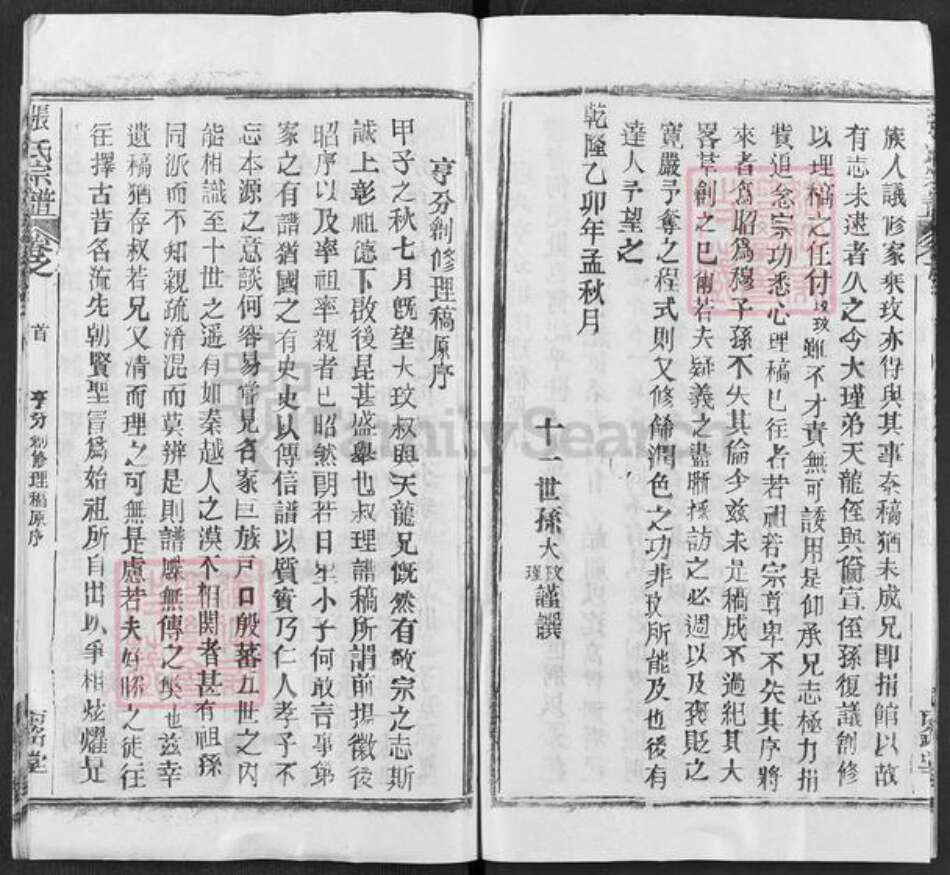 族人議修家乘玫亦得與其事奈稿猶未成兄即捐館以故
有志未逮者久之今大瑾弟天龍侄與儕宣侄孫復議創修
以理稿之任付玫玫雖不才責無可諉用是仰承兄志極力捐
貲追念宗功悉心理稿已往者若祖若宗尊卑不失其序將
來者為昭為穆子孫不失其倫今茲未是稿成不過紀其大
畧草創之已爾若夫疑義之盡晰採訪之必週以及褒貶之
寬嚴予奪之程式則又修餙潤色之功非玫所能及也後有
達人予望之
乾隆乙卯年孟秋月
十一世孫大玫瑾謹譔
亨分創修理稿原序
甲子之秋七月既望大玫叔與天龍兄慨然有敬宗之志斯
誠上彰祖德下啟後昆甚盛舉也叔理譜稿所謂前揚徽後
昭序以及率祖率親者已昭然朗若日星小子何敢言事第
家之有譜猶國之有史史以傳信譜以質實乃仁人孝子不
忘本源之意談何容易嘗見各家巨族戶口殷蕃五世之內
能相識至十世之遙有如秦越人之漠不相関者甚有祖孫
同派而不知親疏淆混而莫辨是則譜牒無傳之獘也茲幸
遺稿猶存叔若兄又清而理之可無是慮若夫好勝之徒往
往擇古昔名流先朝賢聖冒為始祖所自出以爭相炫燿是
張氏宗譜
卷之
首
亨分創修理稿原序
堂
FamilySearch